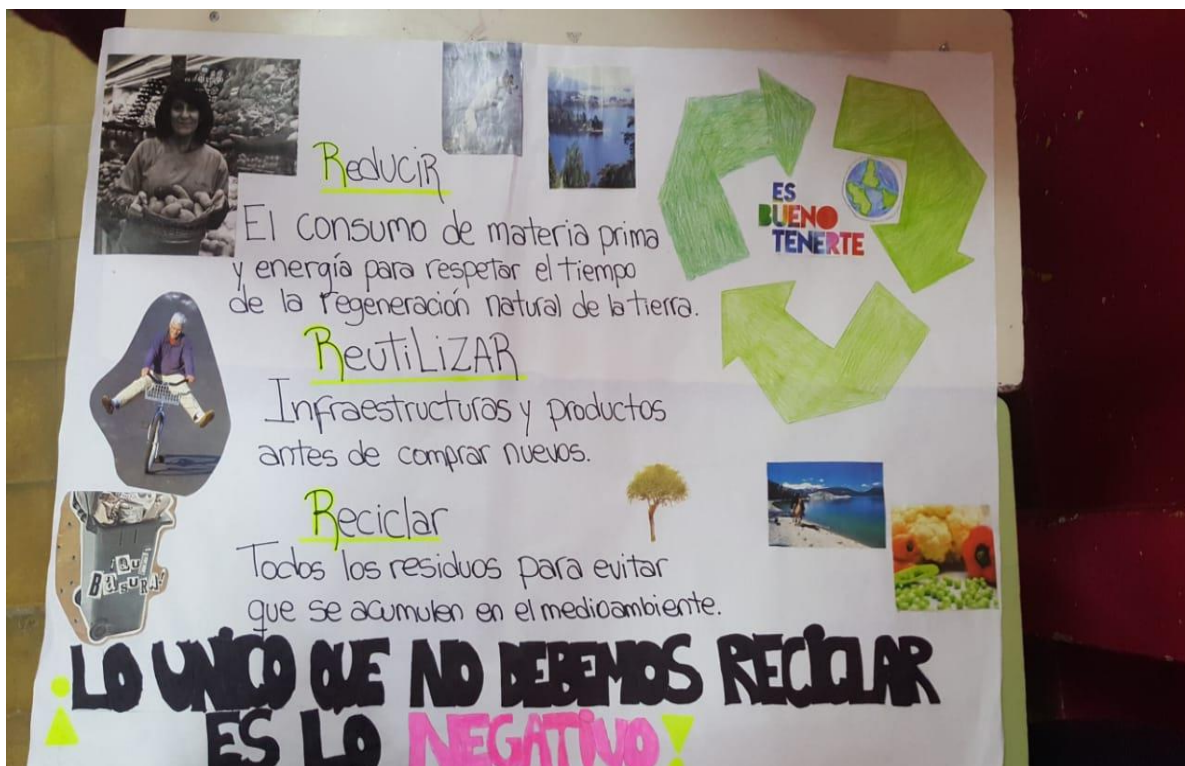 Reducir
El consumo de materia prima
y energía para respetar el tiempo
de la regeneración natural de la tierra.
ReutiLizAR
Infraestructuras y productos
antes de comprar nuevos.
Reciclar
Todos los residuos para evitar
que se acumulen en el medioambiente.
¡LO UNICO QUE NO DEBEMOS RECICLAR
ES LO NEGATIVO!
ES
BUENO
TENERTE
¡QUÉ
BASURA!